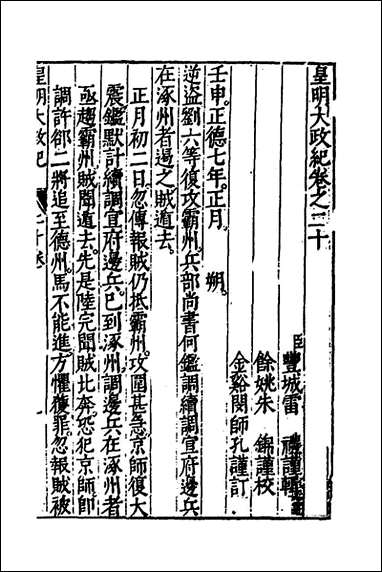 皇明大政紀卷之二十
臣豐城雷 禮謹輯
餘姚朱 錦謹校
金谿閔師孔謹訂
壬申。正德七年。正月。 朔。
逆盜劉六等復攻霸州。兵部尚書何鑑調續調宣府邊兵
在涿州者過之。賊遁去。
正月初二日。忽傳報賊仍抵霸州。攻圍甚急。京師復大
震。鑑默計續調宣府邊兵。已到涿州。調邊兵在涿州者
亟趨霸州。賊聞遁去。先是陸完聞賊比奔。恐犯京師。即
調許郤二將追至德州。馬不能進。方懼獲罪。忽報賊被
皇明大政紀 二十卷